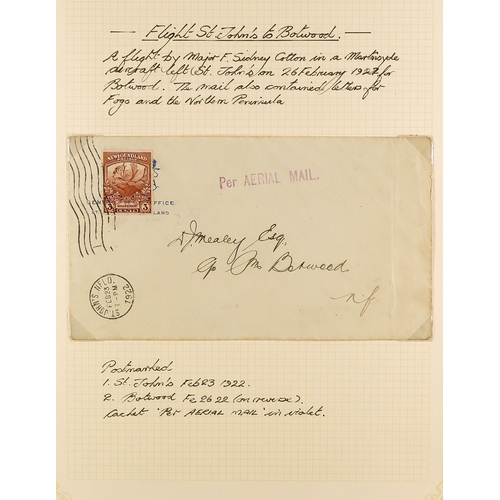 Flight St John's to Botwood.
A flight by Major F. Sidney Cotton in a Martinsyde
aircraft left St. John's on 26 February 1922 for
Botwood. The mail also contained letters for
Fogo and the Northern Peninsula
NEWFOUNDLAND
3 CENTS 3
OFFICE
LAND
Per AERIAL MAIL.
Mealey Esq.
c/o PM Botwood
n.f.
ST. JOHN'S, NFLD.
FEB 23
7-PM
1922
Postmarked
1. St. John's Feb 23 1922.
2. Botwood Fe 26 22 (on reverse).
Cachet 'Per AERIAL MAIL' in violet.